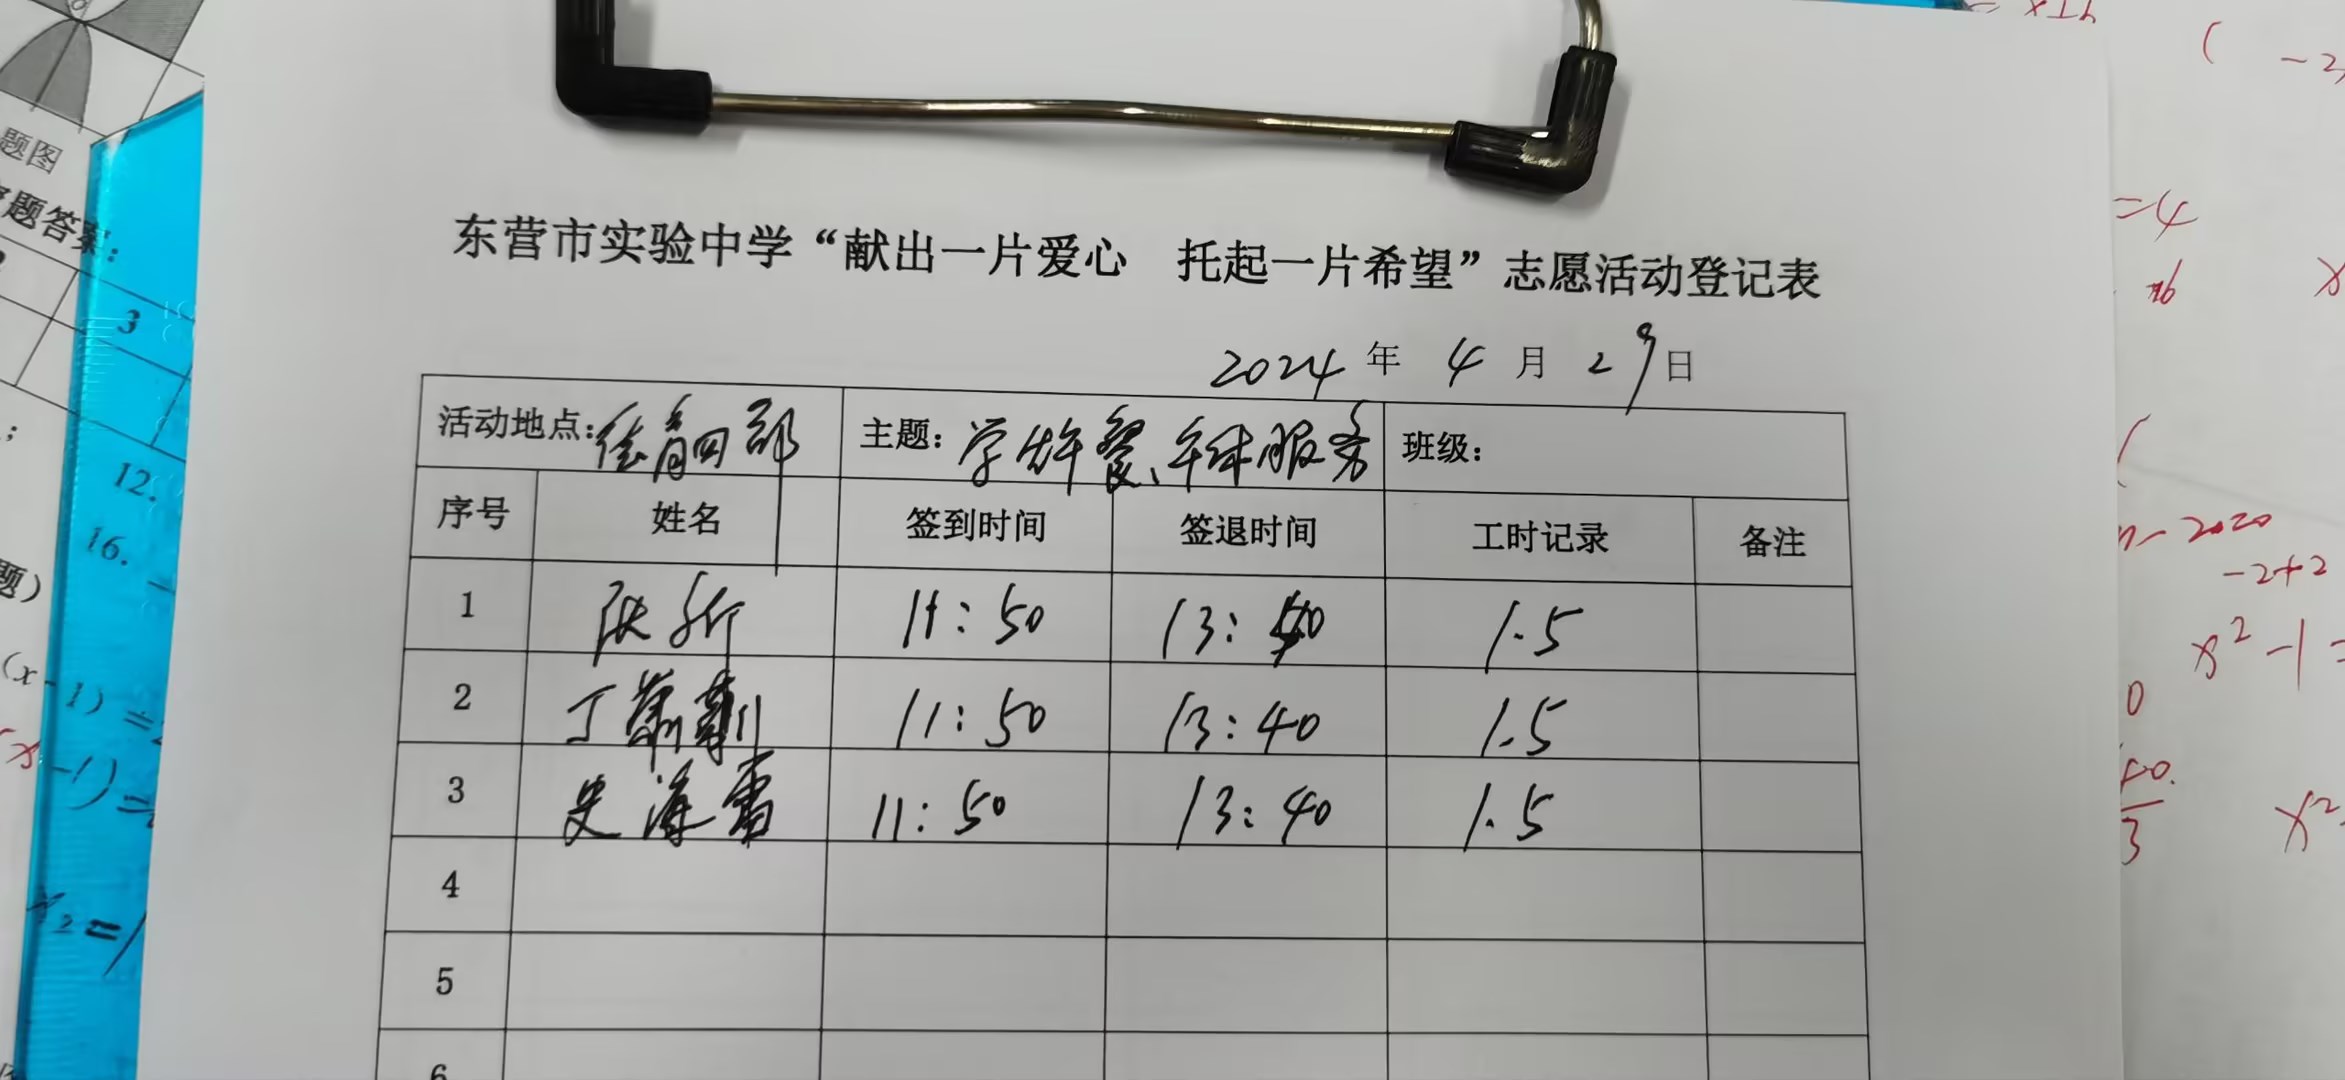 东营市实验中学“献出一片爱心 托起一片希望”志愿活动登记表
2024年 4月 29日
活动地点： 四部 主题：学生午餐、午休服务 班级：
序号 姓名 签到时间 签退时间 工时记录 备注
1 11:50 13:40 1.5
2 丁 11:50 13:40 1.5
3 史海雷 11:50 13:40 1.5
4
5
6
题图
题答案：
3
12.
16.
题）
(x-1)=
-1)=
x2=1
=4
n-2020
-2+2
x²-1=
0
3